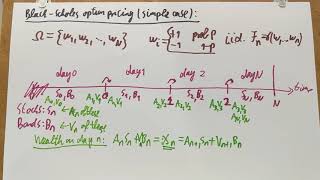 Black-Scholes option pricing (simple case):
Ω = {w₁, w₂, ..., w_N} w_i = {+1 prob p, -1 1-p i.i.d. F_n = σ(w₁...w_n)
day 0 day 1 day 2 day N
S₀, B₀ S₁, B₁ S₂, B₂ S_N, B_N time
A₀, V₀ A₁, V₁ A₁, V₁
Stocks: S_n ← A_n of these
Bonds: B_n ← V_n of these
Wealth on day n: A_n S_n + V_n B_n = X_n = A_{n+1} S_n + V_{n+1} B_n